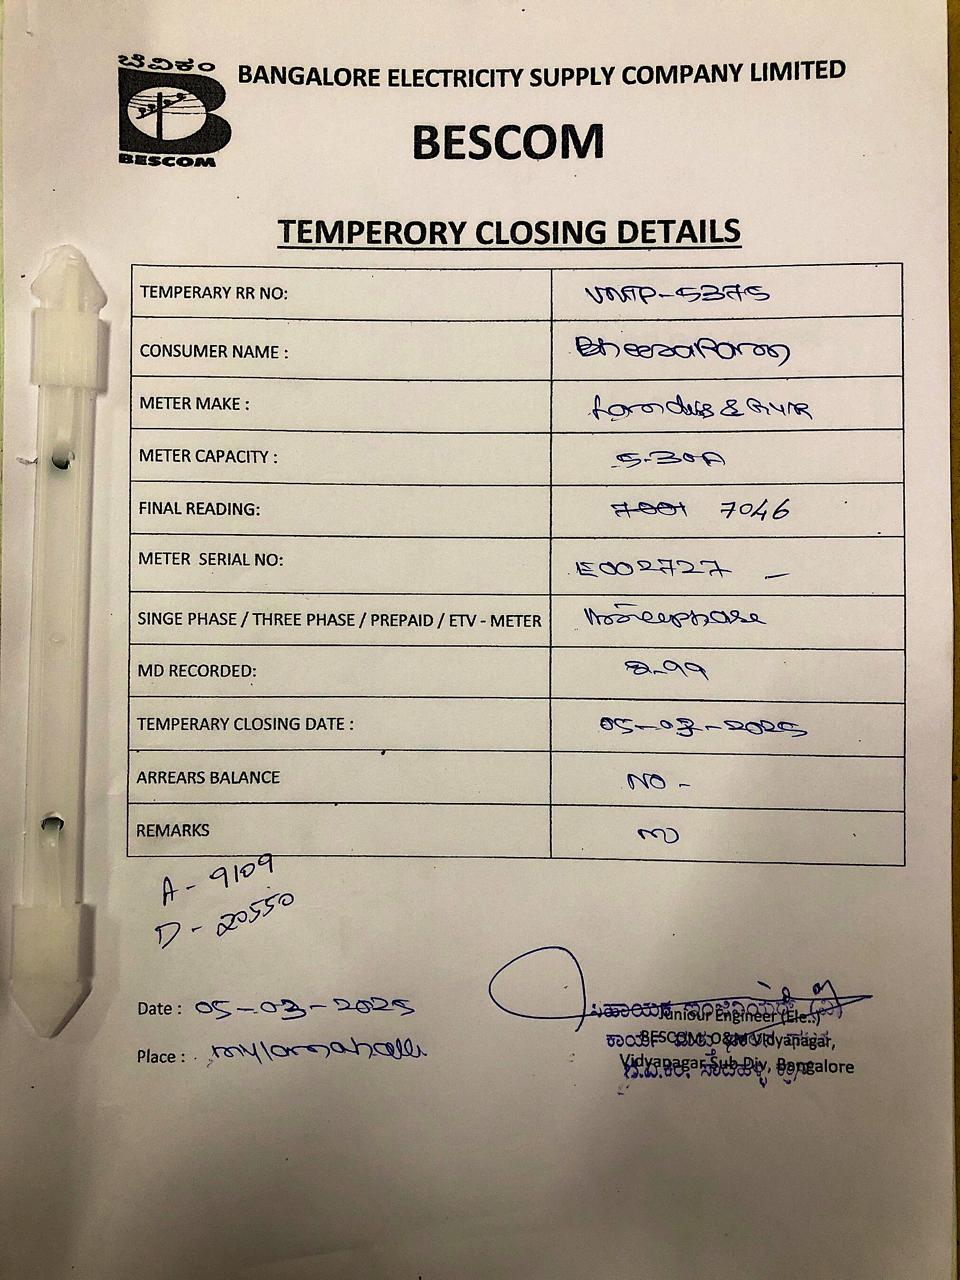 ಬೆವಿಕಂ
BESCOM
BANGALORE ELECTRICITY SUPPLY COMPANY LIMITED
BESCOM
TEMPERORY CLOSING DETAILS
TEMPERARY RR NO: VMTP-5375
CONSUMER NAME :
METER MAKE : & GYR
METER CAPACITY : 5-30A
FINAL READING: 7001 7046
METER SERIAL NO: E002727 -
SINGE PHASE / THREE PHASE / PREPAID / ETV - METER threephase
MD RECORDED: 2-99
TEMPERARY CLOSING DATE : 05-03-2025
ARREARS BALANCE NO -
REMARKS
A - 9109
D - 20550
Date : 05-03-2025
Place : mylamanahalli
ಸಹಾಯಕ
Juniour Engineer (Ele.:)
BESCOM, O&M Vidyanagar,
Vidyapagar Sub Div, Bangalore